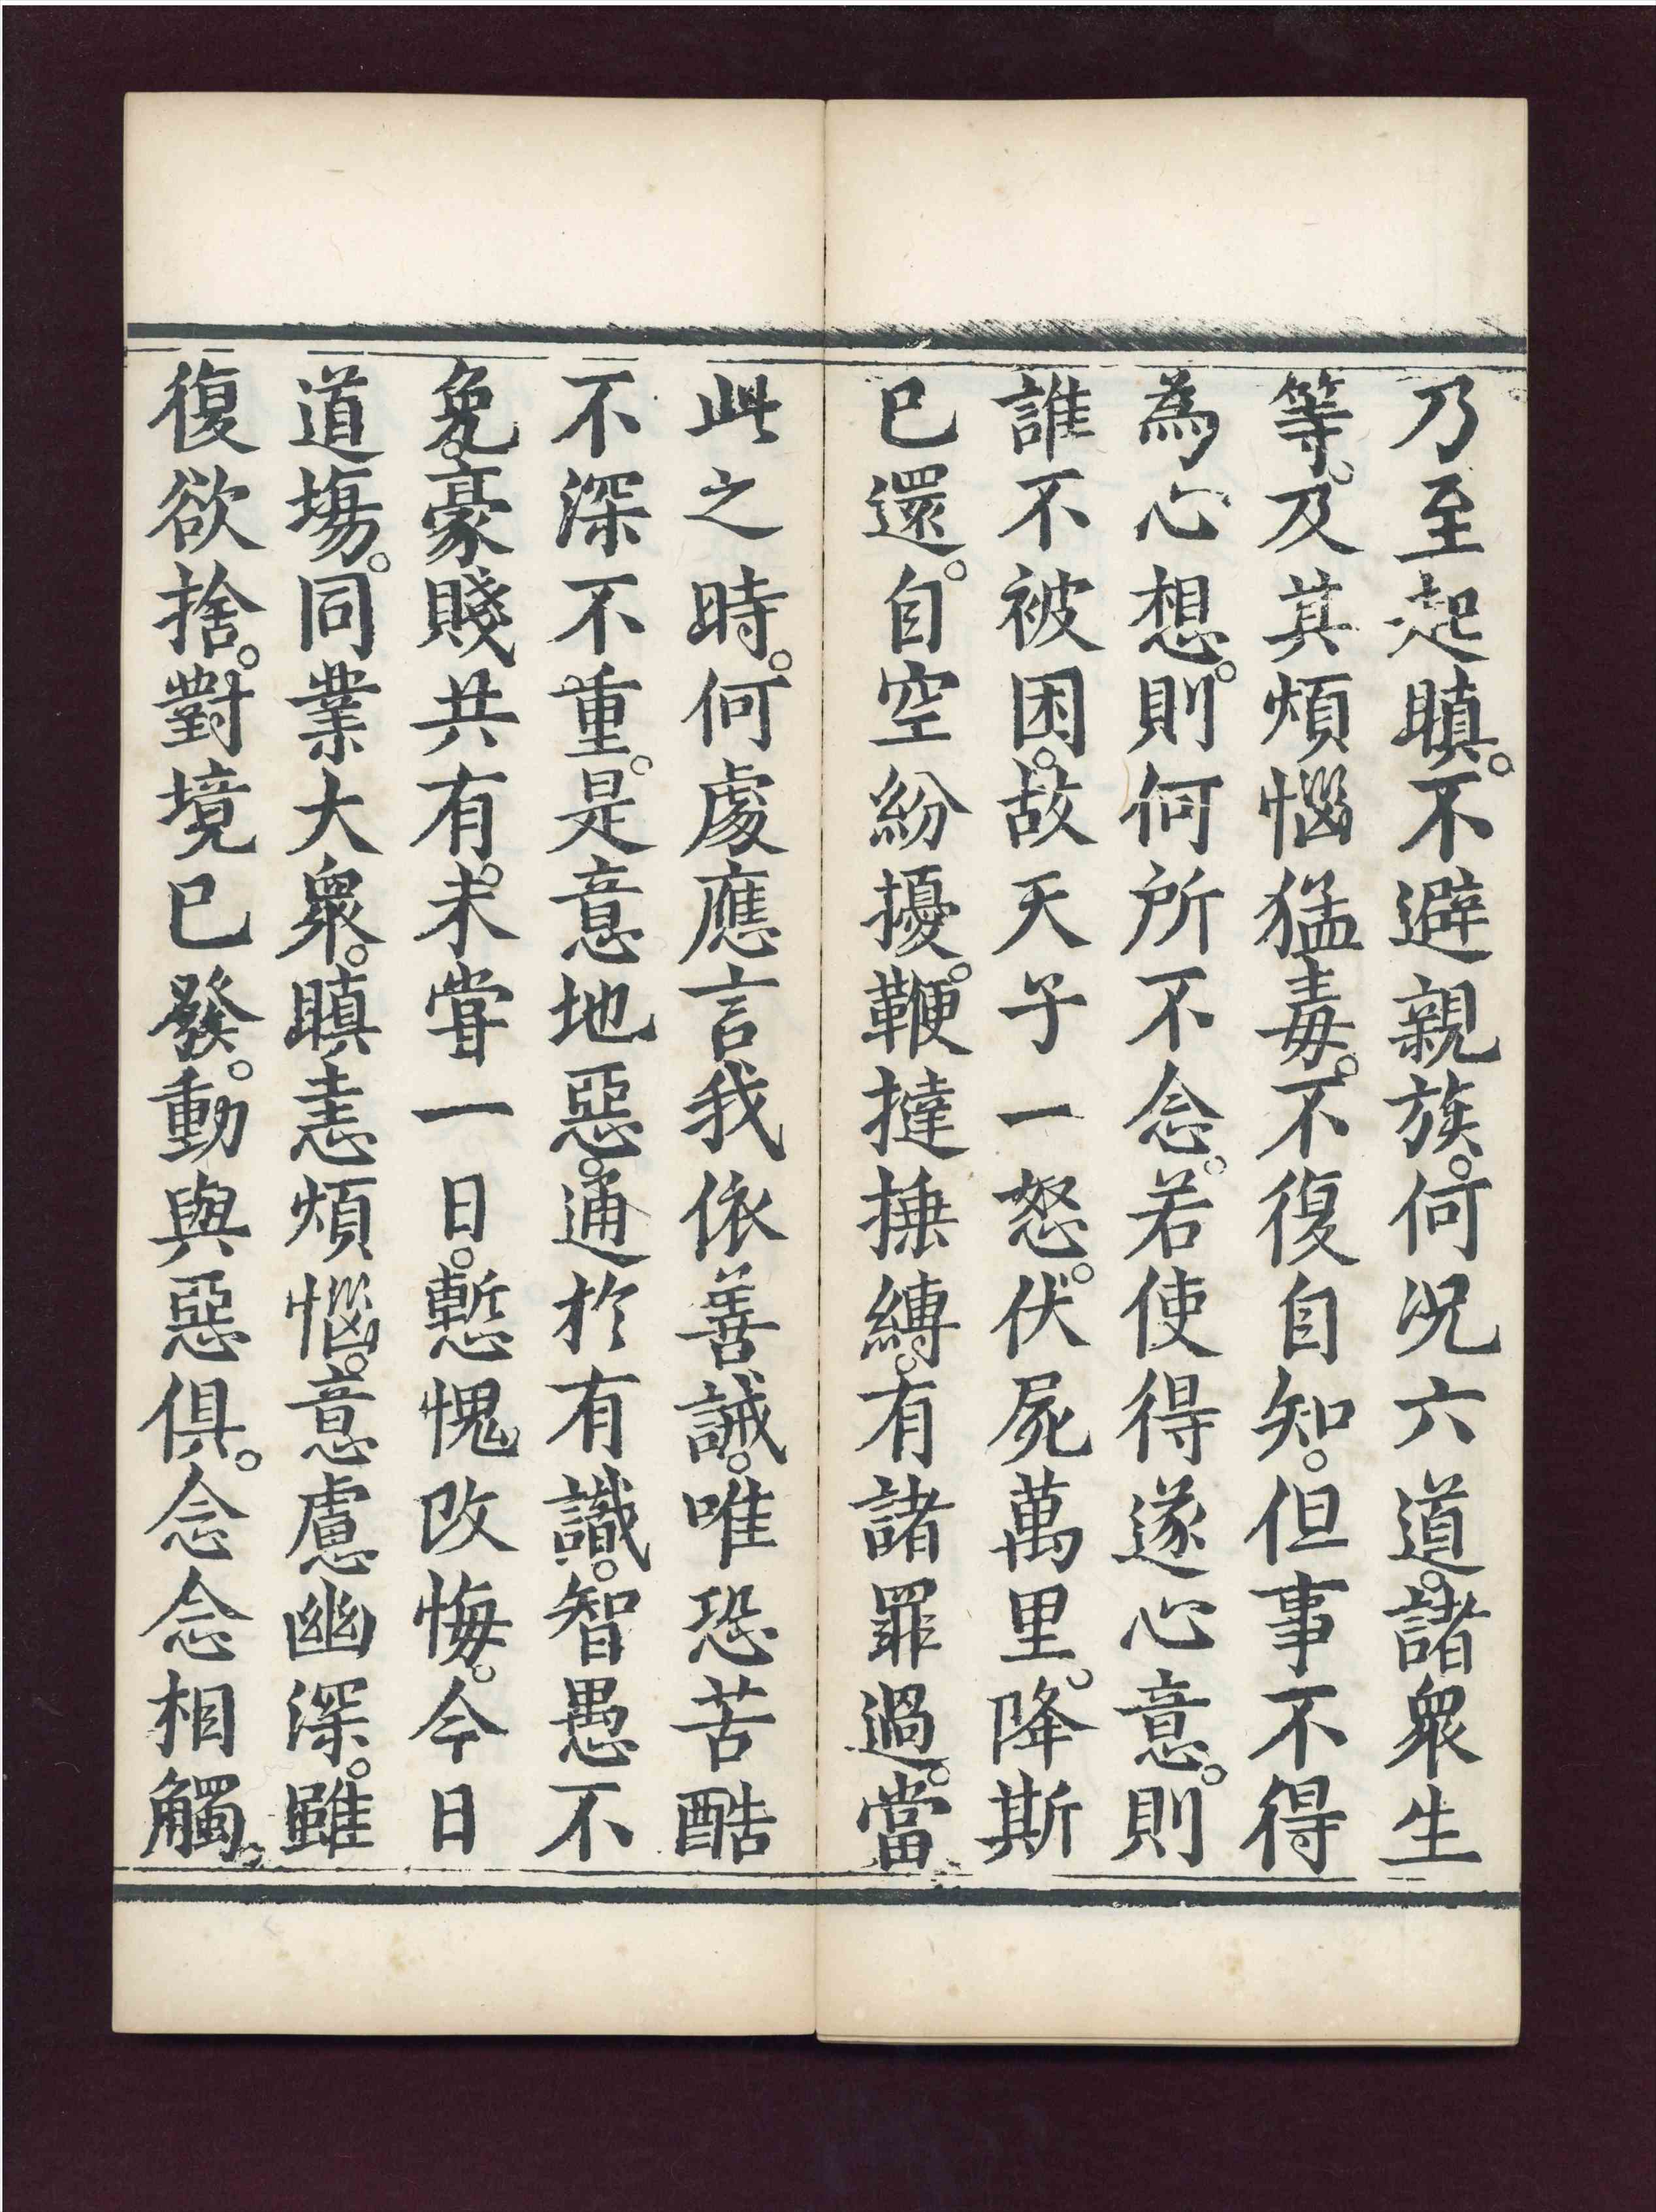 乃至起瞋。不避親族。何況六道。諸衆生
等。及其煩惱猛毒。不復自知。但事不得
為心想。則何所不念。若使得遂心意。則
誰不被困。故天子一怒。伏屍萬里。降斯
已還。自空紛擾。鞭撻捶縛。有諸罪過。當
此之時。何處應言我依善誡。唯恐苦酷
不深不重。是意地惡。通於有識。智愚不
免。豪賤共有。未甞一日。慙愧改悔。今日
道場。同業大衆。瞋恚煩惱。意慮幽深。雖
復欲捨。對境已發。動與惡俱。念念相觸。